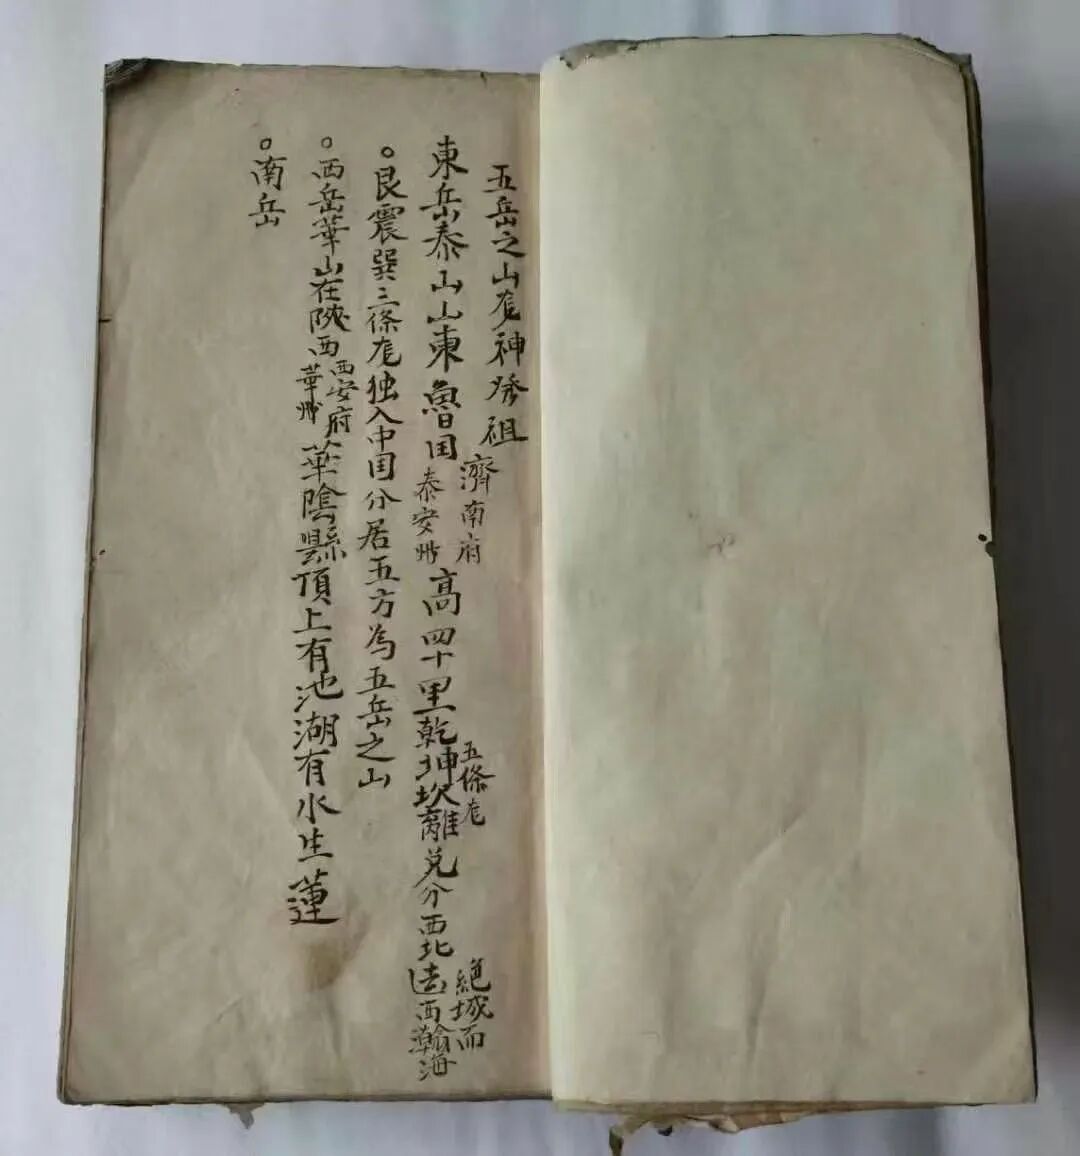 五岳之山尨神發祖
東岳泰山山東魯囯濟南府泰安州高四十里乾坤坎離兑五條尨分西北绝域而迲西瀚海
。艮震巽三條尨独入中囯分居五方為五岳之山
。西岳華山在陝西西安府華州華陰縣頂上有池湖有水生蓮
。南岳